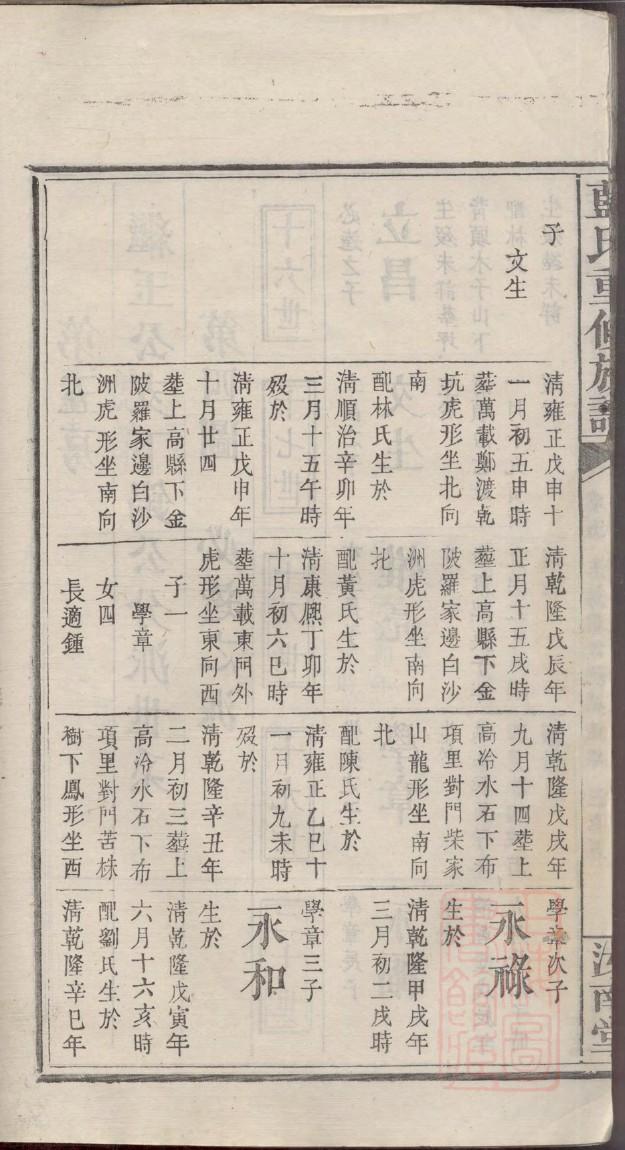 藍氏重修族譜
汝南堂
子
文生
清雍正戊申十
一月初五申時
塟萬載鄭渡乾
坑虎形坐北向
南
配林氏生於
清順治辛卯年
三月十五午時
歿於
清雍正戊申年
十月廿四
塟上高縣下金
陂羅家邊白沙
洲虎形坐南向
北
清乾隆戊辰年
正月十五戌時
塟上高縣下金
陂羅家邊白沙
洲虎形坐南向
北
配黃氏生於
清康熈丁卯年
十月初六巳時
塟萬載東門外
虎形坐東向西
子一
學章
女四
長適鍾
清乾隆戊戌年
九月十四塟上
高冷水石下布
項里對門柴家
山龍形坐南向
北
配陳氏生於
清雍正乙巳十
一月初九未時
歿於
清乾隆辛丑年
二月初三塟上
高冷水石下布
項里對門苦株
樹下鳳形坐西
學章次子
永祿
生於
清乾隆甲戌年
三月初二戌時
學章三子
永和
生於
清乾隆戊寅年
六月十六亥時
配劉氏生於
清乾隆辛巳年